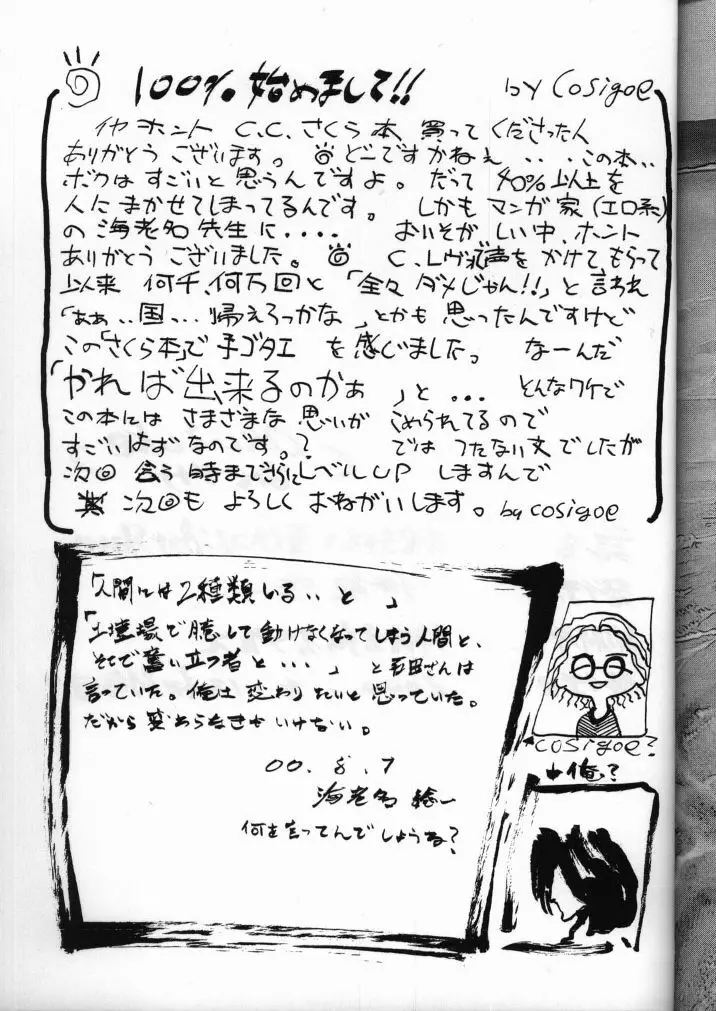 100%始めまして!! by Cosigoe
イヤ ホント C.C.さくら本 買ってくださった人
ありがとうございます。 どーですかねぇ ・・・この本・・
ボクはすごいと思うんですよ。だって 40%以上を
人にまかせてしまってるんです。 しかもマンガ家(エロ系)
の海老名先生に・・・・ おいそがしい中、ホント
ありがとうございました。 C.Lヴで声をかけてもらって
以来 何千、何万回と「全々ダメじゃん!!」と言われ
「あぁ・・国・・・帰えろっかな」とかも思ったんですけど
この「さくら本」で手ゴタエ を感じました。 なーんだ
「かれば出来るのかぁ」と・・・ とんなワケで
この本には さまざまな思いが こめられてるので
すごいはずなのです。? では つたない文でしたが
次回会う時までさらにLベルUP しますんで
次回もよろしくおねがいします。by cosigoe
「人間には2種類いる・・と」
「土壇場で臆して動けなくなってしまう人間と、
そこで奮い立つ者と・・・」 とさんは
言っていた。俺は変わりたいと思っていた。
だから変わらなきゃいけない。
00.8.7
海老名
何を言ってんでしょうね?
cosigoe?
俺?